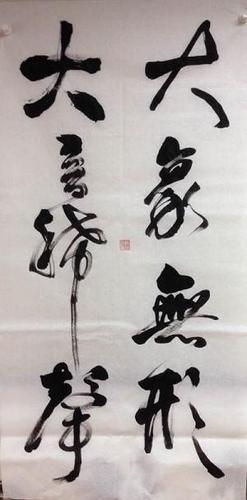 大象無形
大音稀聲